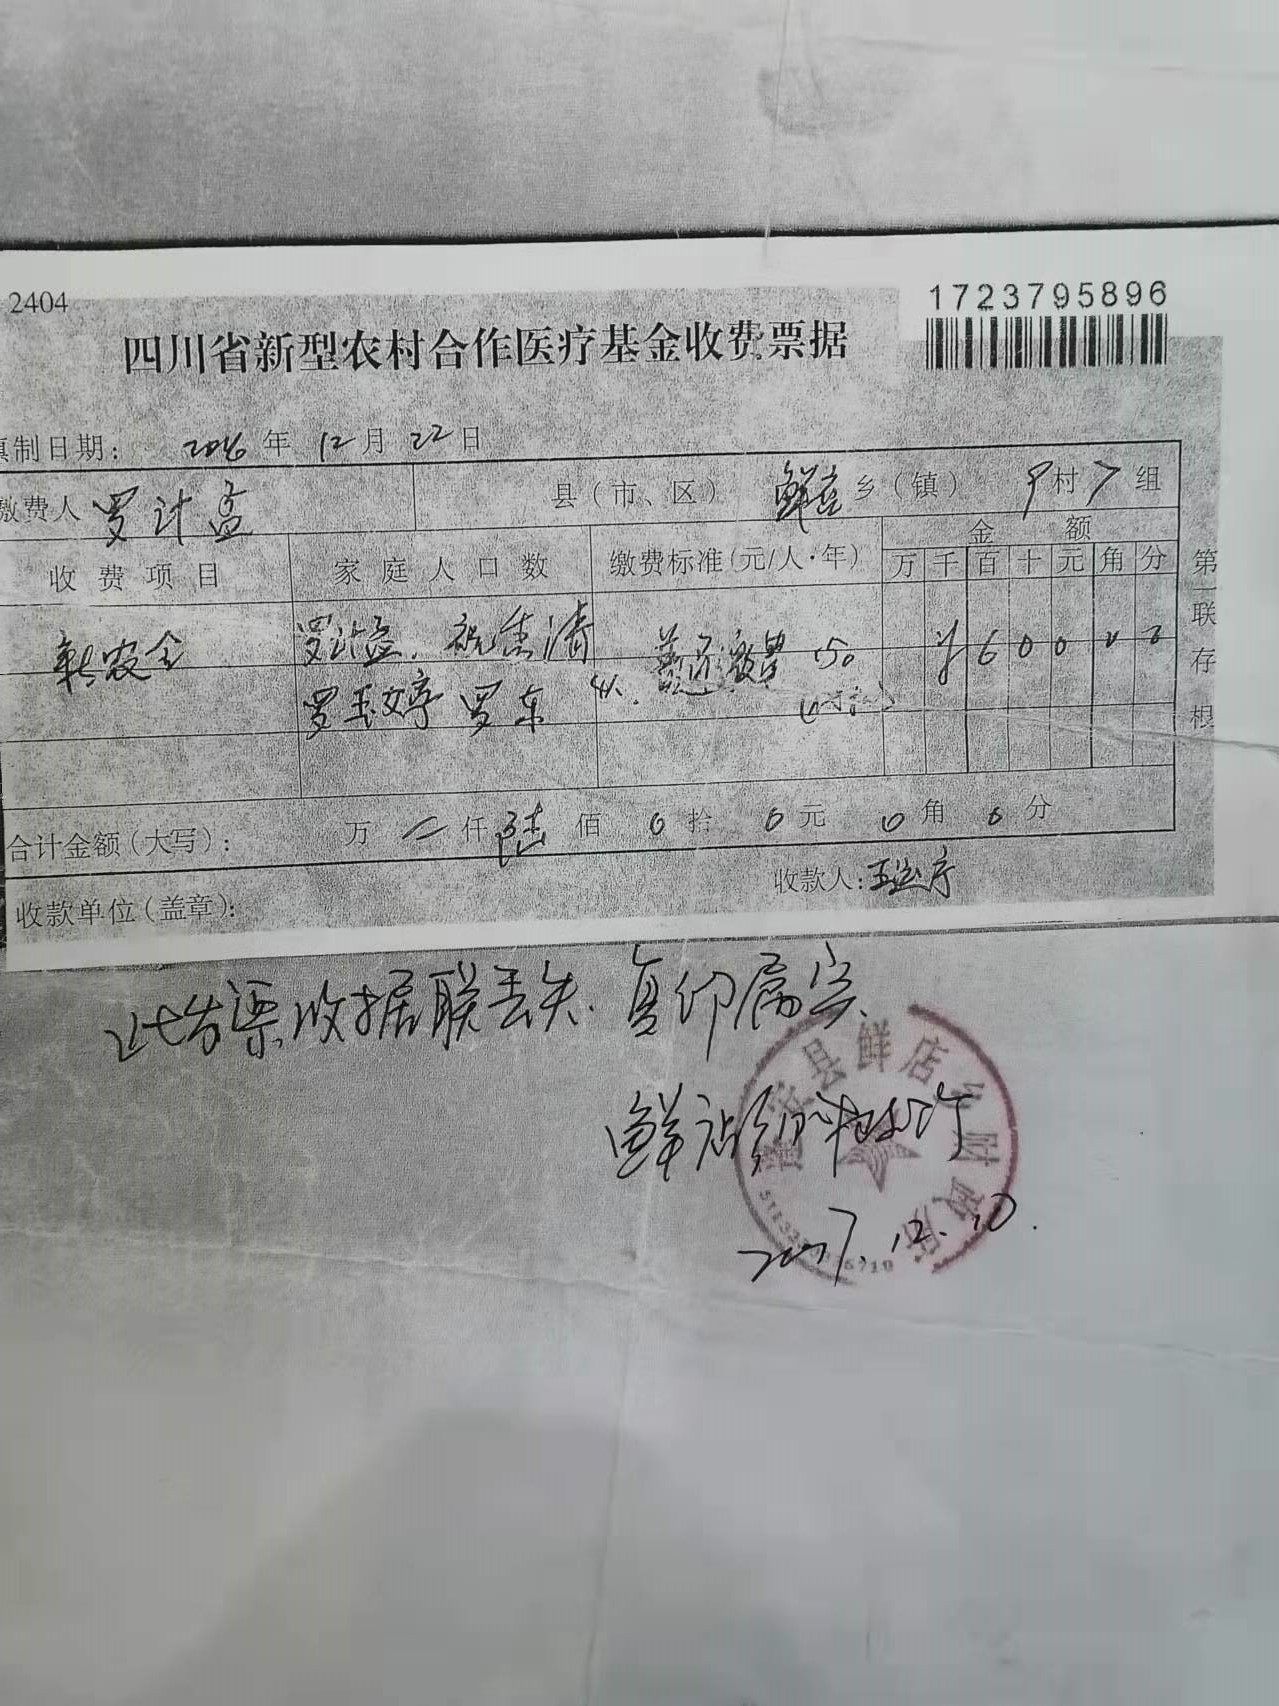 2404
1723795896
四川省新型农村合作医疗基金收费票据
填制日期： 2016 年 12 月 22 日
缴费人 罗计孟 县（市、区） 鲜店 乡（镇） 9 村 7 组
金 额
收费项目 家庭人口数 缴费标准（元/人·年） 万 千 百 十 元 角 分
新农合 罗计孟、祝 清 缴费 150 ¥ 6 0 0 0 0
罗玉婷 罗东 4人
第一联存根
合计金额（大写）： 万 仟 陆 佰 0 拾 0 元 0 角 0 分
收款单位（盖章）： 收款人：王 序
此发票收据联丢失.复印属实.
鲜店乡财政所
2017.12.10.
县鲜店乡财政所